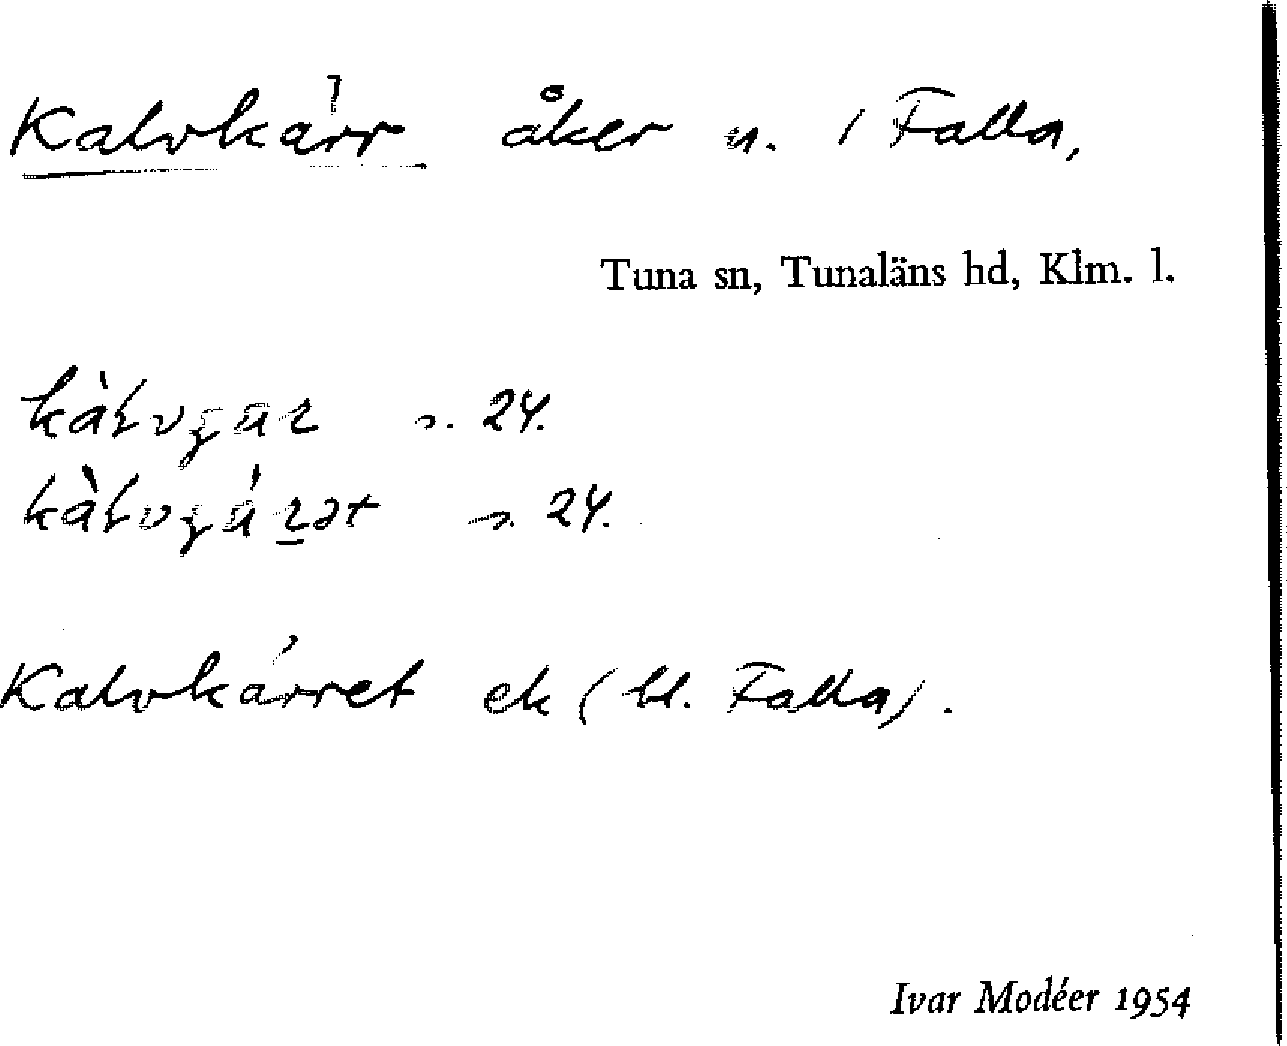 Kalvkärr åker n. i Falla,
Tuna sn, Tunaläns hd, Klm. l.
s. 24.
s. 24.
Kalvkärret ek (bl. Falla).
Ivar Modéer 1954